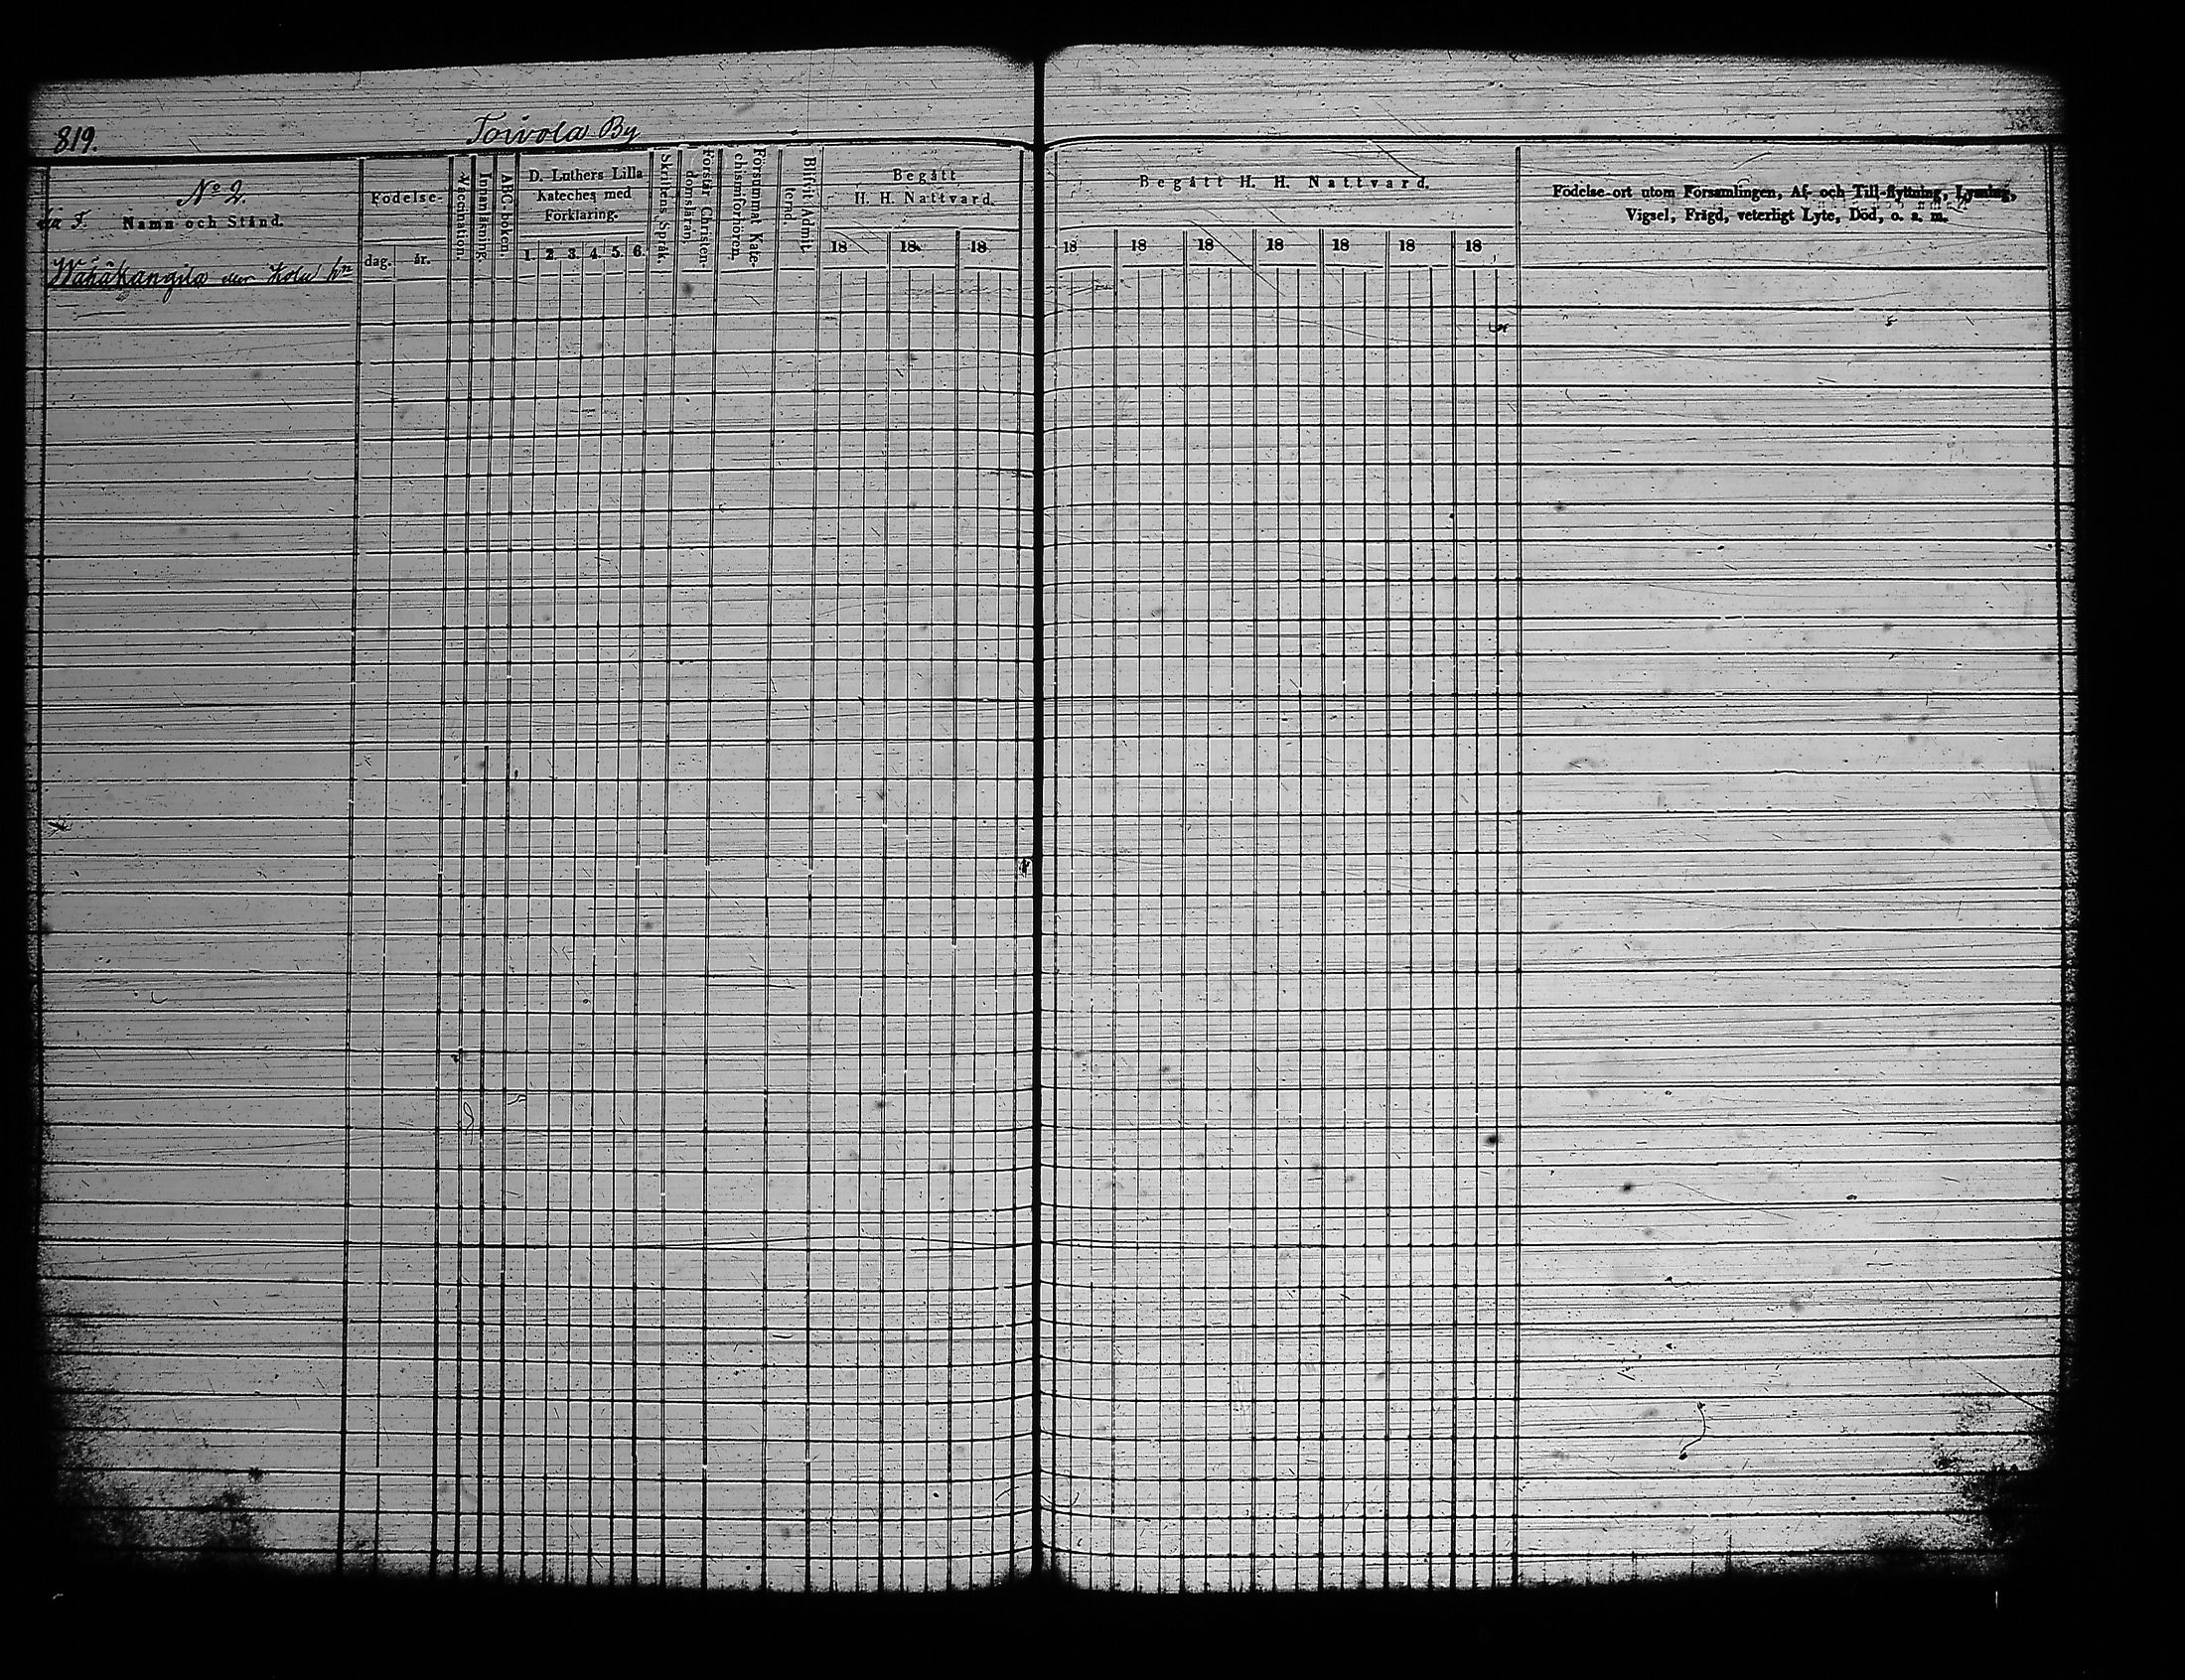 819.
Toivola By
No 2.
Namn och Stånd.
Födelse-
dag.
år.
Vaccination.
Innanläsning.
ABC-boken.
D. Luthers Lilla
Kateches med
Förklaring.
1. 2. 3. 4. 5. 6.
Skriftens Språk.
Förstår Christen-
domsläran.
Försummat Kate-
chismiförhören.
Blifvit Admit-
terad.
Begått
H. H. Nattvard.
18 18 18
Begått H. H. Nattvard.
18 18 18 18 18 18 18
Födelse-ort utom Församlingen, Af- och Till-flyttning, Lysning,
Vigsel, Frägd, veterligt Lyte, Död, o. s. m.
Wähäkangila